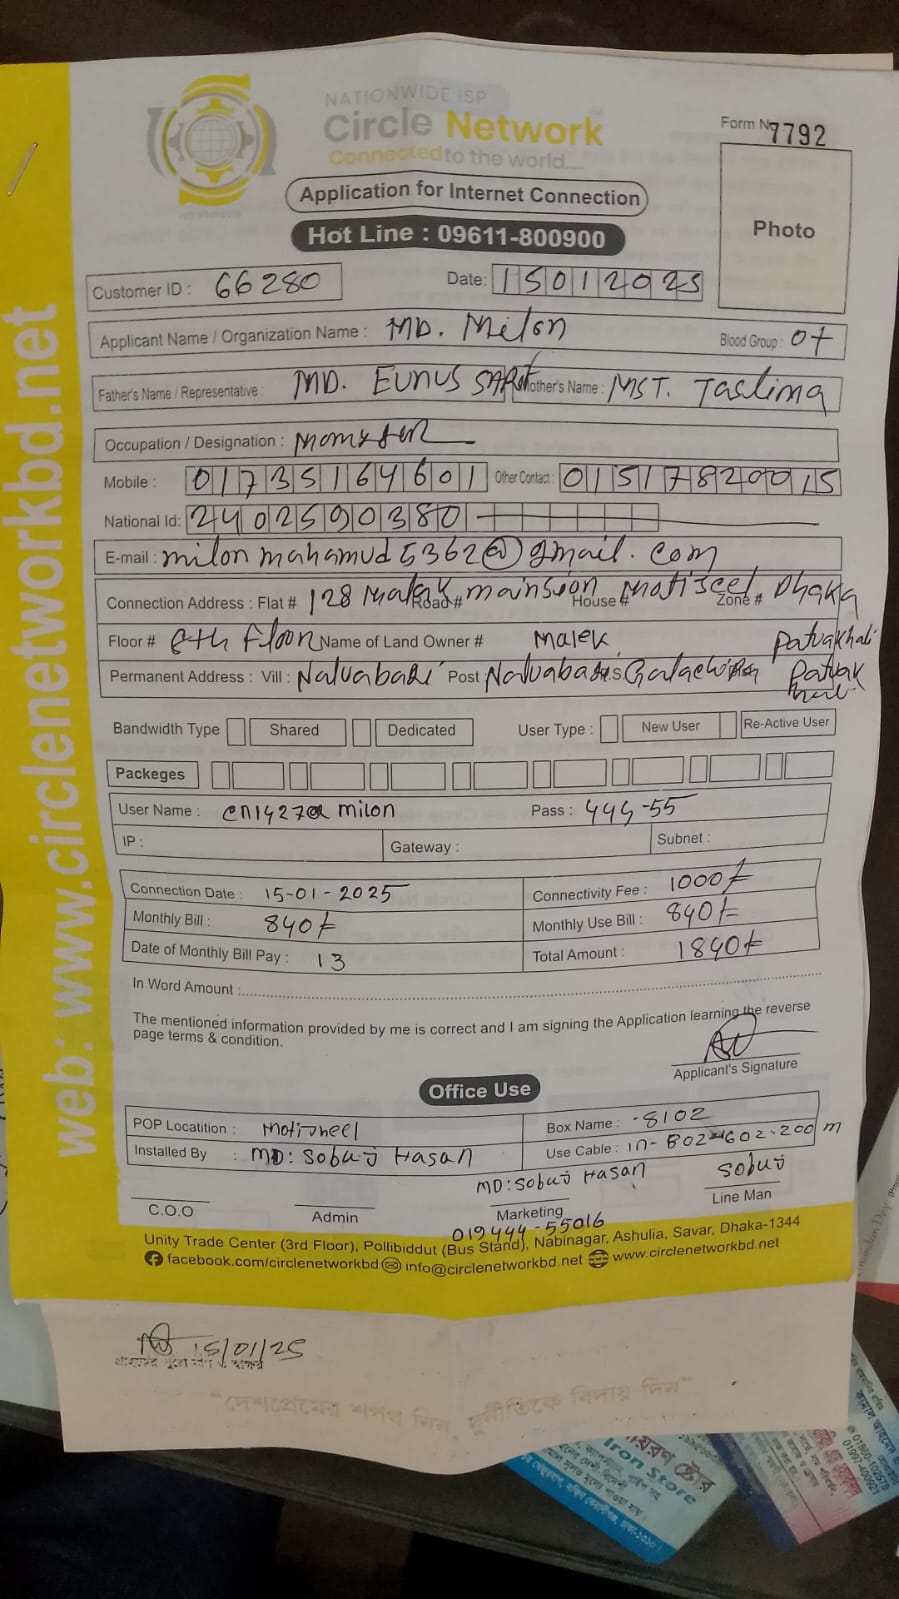 NATIONWIDE ISP
Circle Network
Connected to the world
Form No 7792
Application for Internet Connection
Hot Line : 09611-800900
Photo
Customer ID : 66280 Date: 15012025
Applicant Name / Organization Name : MD. Milon Blood Group : O+
Father's Name / Representative : MD. EUNUS Mother's Name : MST. Taslima
Occupation / Designation :
Mobile : 01735164601 Other Contact : 01517820015
National Id: 2402590380
E-mail : milonmahamud5362@gmail.com
Connection Address : Flat # 128 Malek Road # mainsion House # Motijeel Zone # Dhaka
Floor # 8th Floor Name of Land Owner # Malek Patuakhali
Permanent Address : Vill : Naluabari Post
Bandwidth Type Shared Dedicated User Type : New User Re-Active User
Packeges
User Name : milon Pass : -55
IP : Gateway : Subnet :
Connection Date : 15-01-2025 Connectivity Fee : 1000/-
Monthly Bill : 840/- Monthly Use Bill : 840/-
Date of Monthly Bill Pay : 13 Total Amount : 1840/-
In Word Amount :
The mentioned information provided by me is correct and I am signing the Application learning the reverse
page terms & condition.
Applicant's Signature
Office Use
POP Locatition : Motijheel Box Name : -8102
Installed By : MD: Sobuj Hasan Use Cable : 200 m
MD: Sobuj Hasan Sobuj
C.O.O Admin Marketing Line Man
019444-55016
Unity Trade Center (3rd Floor), Pollibiddut (Bus Stand), Nabinagar, Ashulia, Savar, Dhaka-1344
facebook.com/circlenetworkbd info@circlenetworkbd.net www.circlenetworkbd.net
web: www.circlenetworkbd.net
15/01/25
"দেশপ্রেমের শপথ নিন, দুর্নীতিকে বিদায় দিন"
Iron Store
01860-102578
01997-400921